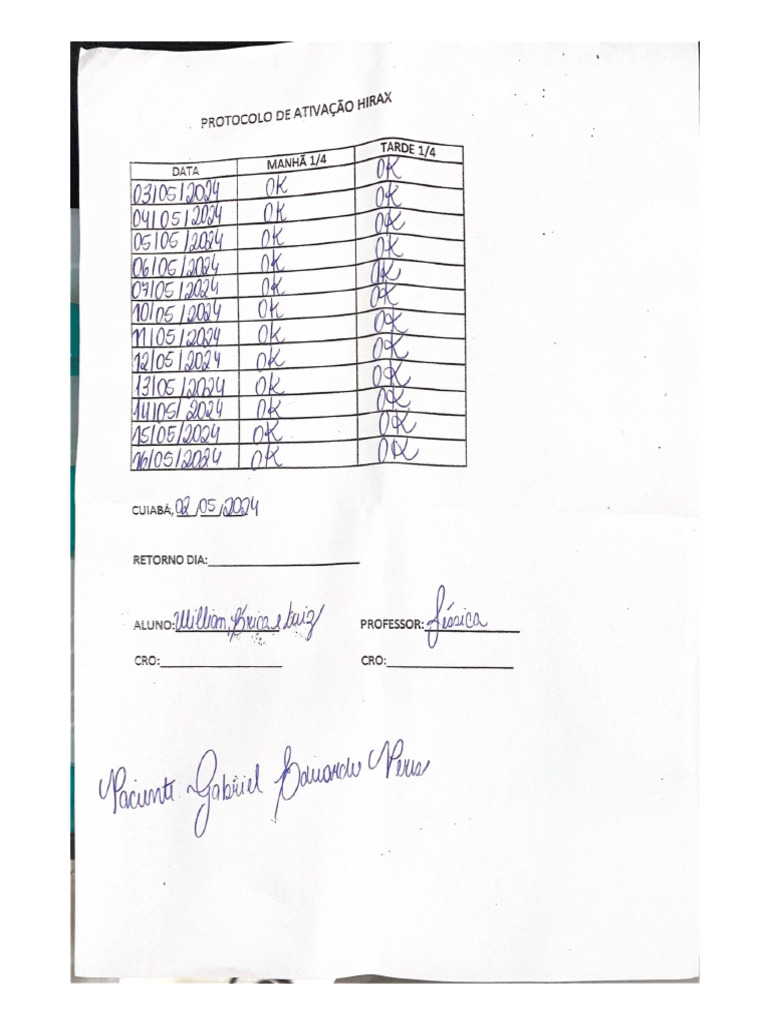 PROTOCOLO DE ATIVAÇÃO HIRAX
DATA MANHÃ 1/4 TARDE 1/4
03/05/2024 OK OK
04/05/2024 OK OK
05/05/2024 OK OK
06/05/2024 OK OK
07/05/2024 OK OK
10/05/2024 OK OK
11/05/2024 OK OK
12/05/2024 OK OK
13/05/2024 OK OK
14/05/2024 OK OK
15/05/2024 OK OK
16/05/2024 OK OK
CUIABÁ, 02/05/2024
RETORNO DIA:
ALUNO: Willian, Érica e Luiz PROFESSOR: Jéssica
CRO: CRO:
Paciente Gabriel Eduardo